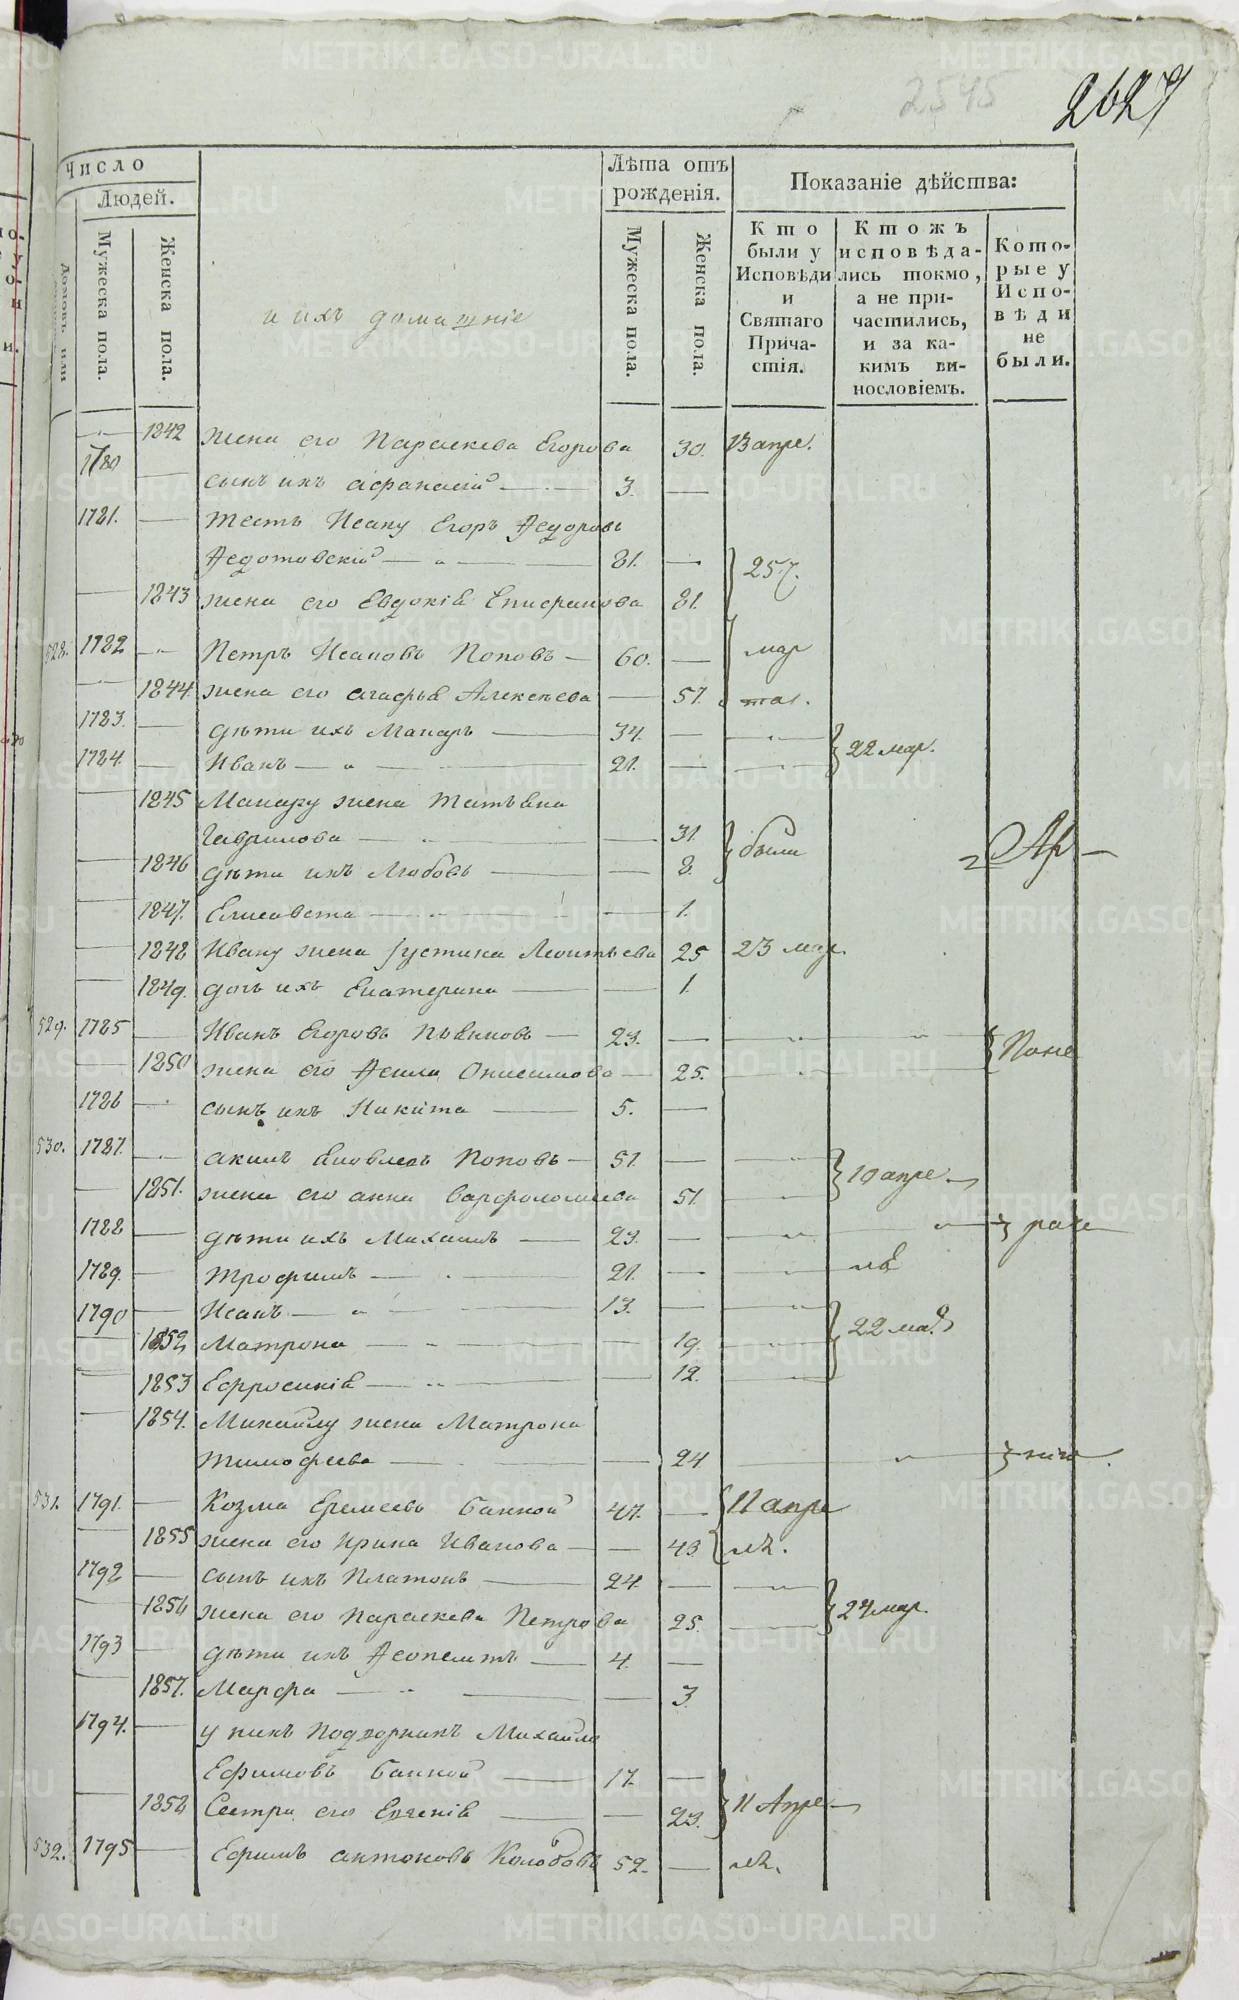 2545
2627
Число
Людей.
Домовъ, или
Мужеска пола.
Женска пола.
и ихъ домашніе
Лѣта отъ
рожденія.
Мужеска пола.
Женска пола.
Показаніе дѣйства:
Кто
были у
Исповѣди
и
Святаго
Прича-
стія.
Ктожъ
исповѣда-
лись токмо,
а не при-
частились,
и за ка-
кимъ ви-
нословіемъ.
Кото-
рые у
Испо-
вѣди
не
были.
1842 жена его Параскева Егорова 30. 13 апре.
1780 сынъ ихъ Афанасій 3.
1781. тесть Исаку Егоръ Федоровъ
Федотовскій 81. 257.
1843 жена его Евдокія Епифанова 81.
528. 1782 Петръ Исаковъ Поповъ 60. мар
1844 жена его Агафья Алексѣева 57.
1783. дѣти ихъ Макаръ 34.
22 мар.
1784. Иванъ 21.
1845 Макару жена Татьяна
Гаврилова 31. были
1846 дѣти ихъ Любовь 8.
1847. Елисавета 1.
1848 Ивану жена Іустина Леонтьева 25 23 мар.
1849. дочь ихъ Екатерина 1.
529. 1785 Иванъ Егоровъ Пьянковъ 23.
1850 жена его Акила Онисимова 25.
1786 сынъ ихъ Никита 5.
530. 1787. Акимъ Яковлевъ Поповъ 51.
10 апре.
1851. жена его Анна Варфоломеева 51.
1788 дѣти ихъ Михаилъ 23.
1789. Трофимъ 21.
1790 Исакъ 13.
22 мар
1852 Матрона 19.
1853 Ефросинія 12.
1854. Михаилу жена Матрона
Тимофеева 24
531. 1791. Козма Еремеевъ Банной 47. 11 апре
1855 жена его Ирина Иванова 43
1792 сынъ ихъ Платонъ 24.
24 мар.
1856 жена его Параскева Петрова 25.
1793 дѣти ихъ Феопемптъ 4.
1857. Марфа 3
1794. у нихъ подворникъ Михаило
Ефимовъ Банной 17.
11 Апре
1858 Сестра его Евгенія 23.
532. 1795 Ефимъ Антоновъ Колобовъ 52.
METRIKI.GASO-URAL.RU